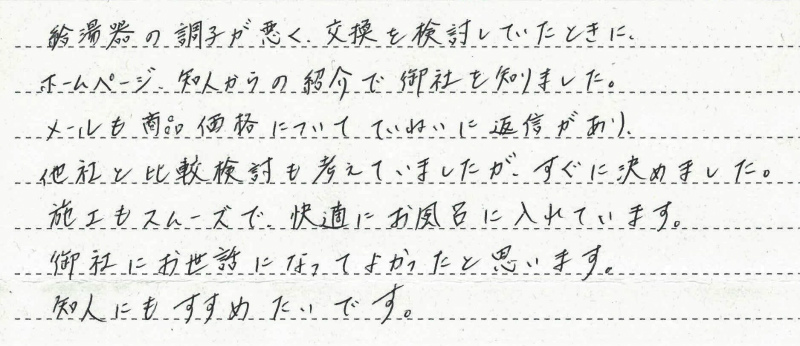 給湯器の調子が悪く、交換を検討していたときに、
ホームページ、知人からの紹介で御社を知りました。
メールも商品価格についてていねいに返信があり、
他社と比較検討も考えていましたが、すぐに決めました。
施工もスムーズで、快適にお風呂に入れています。
御社にお世話になってよかったと思います。
知人にもすすめたいです。